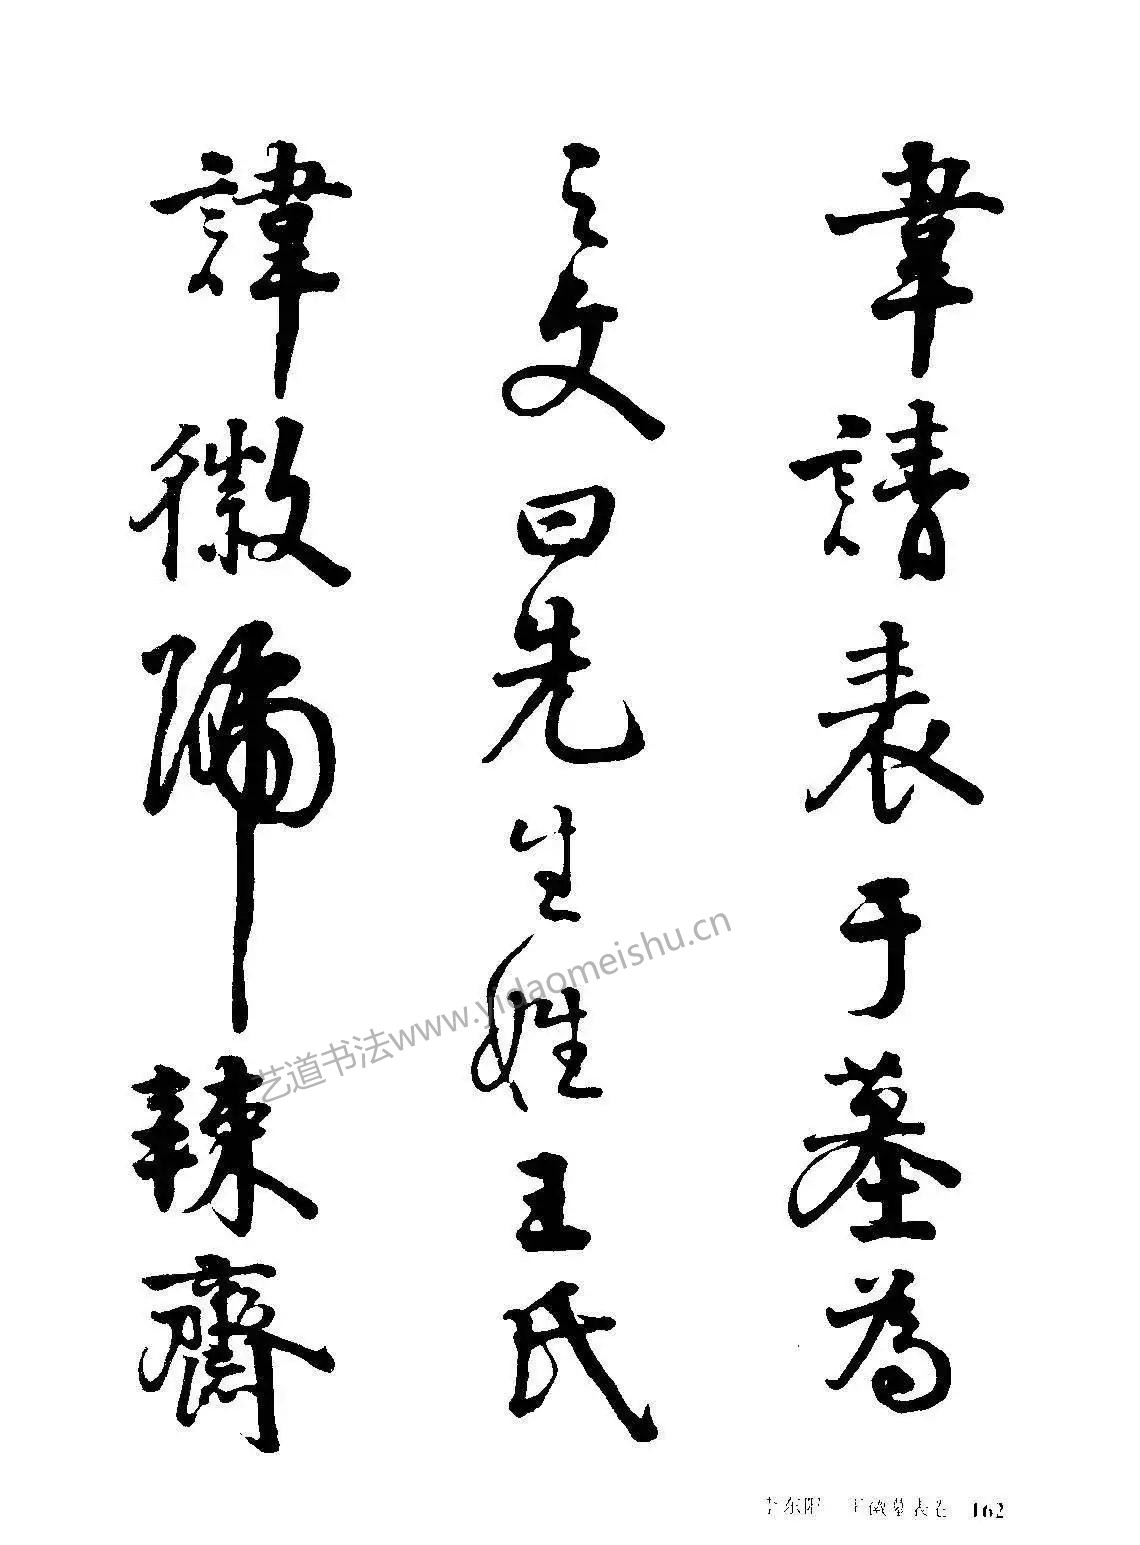 韋請表于墓為
之文曰先生姓王氏
諱徽號辣齋
艺道书法www.yidaomeishu.cn
李东阳 王徽墓表卷 162